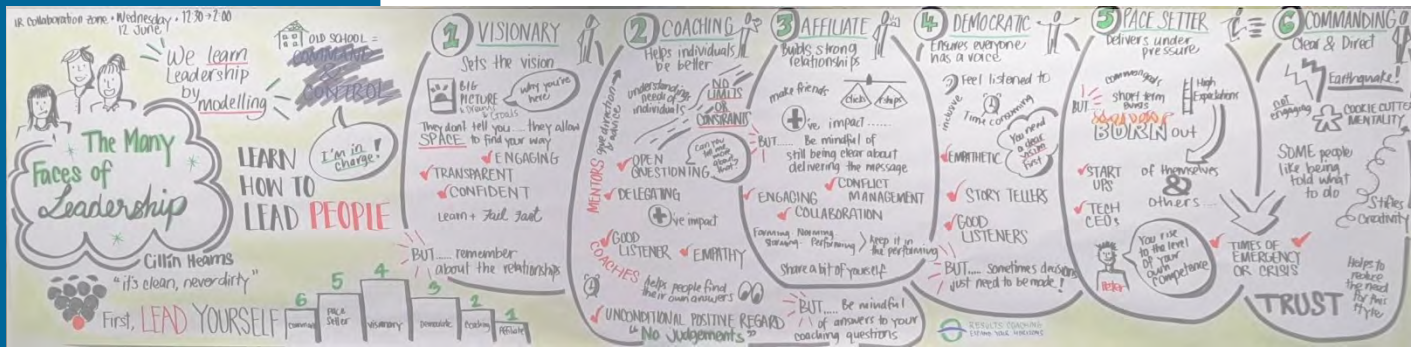 IR Collaboration Zone • Wednesday • 12:30 → 2:00
12 June
We learn
Leadership
by
modelling
OLD SCHOOL =
COMMAND
&
CONTROL
I'm in
charge!
The Many
Faces of
Leadership
Cillin Hearns
LEARN
HOW TO
LEAD PEOPLE
"it's clean, never dirty"
First, LEAD YOURSELF
6
5
4
3
2
1
Pace
Setter
visionary
Democratic
Coaching
Affiliate
1 VISIONARY
Sets the vision
BIG
PICTURE
& Goals
Why you're
here!
They don't tell you.... they allow
SPACE to find your way
ENGAGING
TRANSPARENT
CONFIDENT
Learn + Fail Fast
BUT..... remember
about the relationships
2 COACHING
Helps individuals
be better
understanding
needs of
individuals
NO
LIMITS
OR
CONSTRAINTS
MENTORS
give direction
& advice
OPEN
QUESTIONING
Can you
tell me
more
about
that?
DELEGATING
've impact
GOOD
LISTENER
EMPATHY
COACHES
helps people find
their own answers
UNCONDITIONAL POSITIVE REGARD
"No Judgements"
BUT.... Be mindful
of answers to your
coaching questions
3 AFFILIATE
Builds strong
relationships
make friends
clicks
r'ships
've impact ......
BUT... Be mindful of
still being clear about
delivering the message
ENGAGING
CONFLICT
MANAGEMENT
COLLABORATION
Forming.. Norming..
Storming.. Performing..
keep it in
the performing
Share a bit of yourself
4 DEMOCRATIC
Ensures everyone
has a voice
Feel listened to
inclusive
Time Consuming
You need
a clear
vision
first
EMPATHETIC
STORY TELLERS
GOOD
LISTENERS
BUT..... sometimes decisions
just need to be made!
RESULTS COACHING
5 PACE SETTER
Delivers under
pressure
common goals
High
Expectations
BUT...
short term
Bursts
BURN out
of themselves
&
others...
START
UPS
TECH
CEOs
You rise
to the level
of your
own
competence
Peter
TIMES OF
EMERGENCY
OR CRISIS
6 COMMANDING
Clear & Direct
Earthquake!
not
engaging
COOKIE CUTTER
MENTALITY
SOME people
like being
told what
to do
Stifles
Creativity
TRUST
Helps to
reduce
the need
for this
style